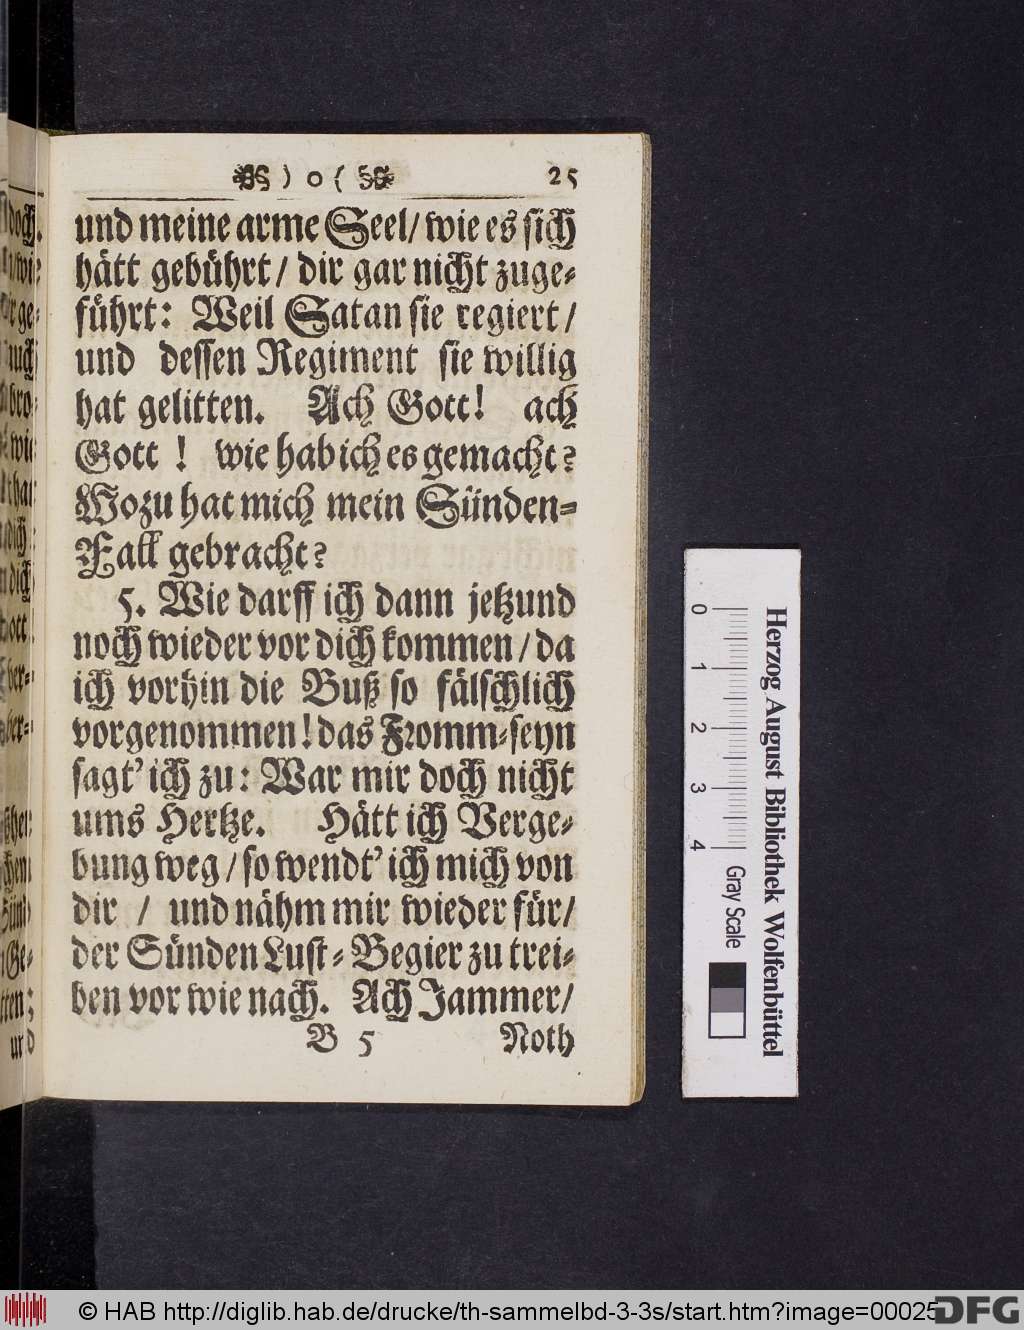 ) o ( 25
und meine arme Seel/ wie es sich
hätt gebührt/ dir gar nicht zuge-
führt: Weil Satan sie regiert/
und dessen Regiment sie willig
hat gelitten. Ach Gott! ach
Gott! wie hab ich es gemacht?
Wozu hat mich mein Sünden-
Fall gebracht?
5. Wie darff ich dann jetzund
noch wieder vor dich kommen/ da
ich vorhin die Buß so fälschlich
vorgenommen! das Fromm-seyn
sagt' ich zu: War mir doch nicht
ums Hertze. Hätt ich Verge-
bung weg/ so wendt' ich mich von
dir / und nähm mir wieder für/
der Sünden Lust-Begier zu trei-
ben vor wie nach. Ach Jammer/
B 5 Noth
Herzog August Bibliothek Wolfenbüttel
0 1 2 3 4 Gray Scale
© HAB http://diglib.hab.de/drucke/th-sammelbd-3-3s/start.htm?image=00025
DFG